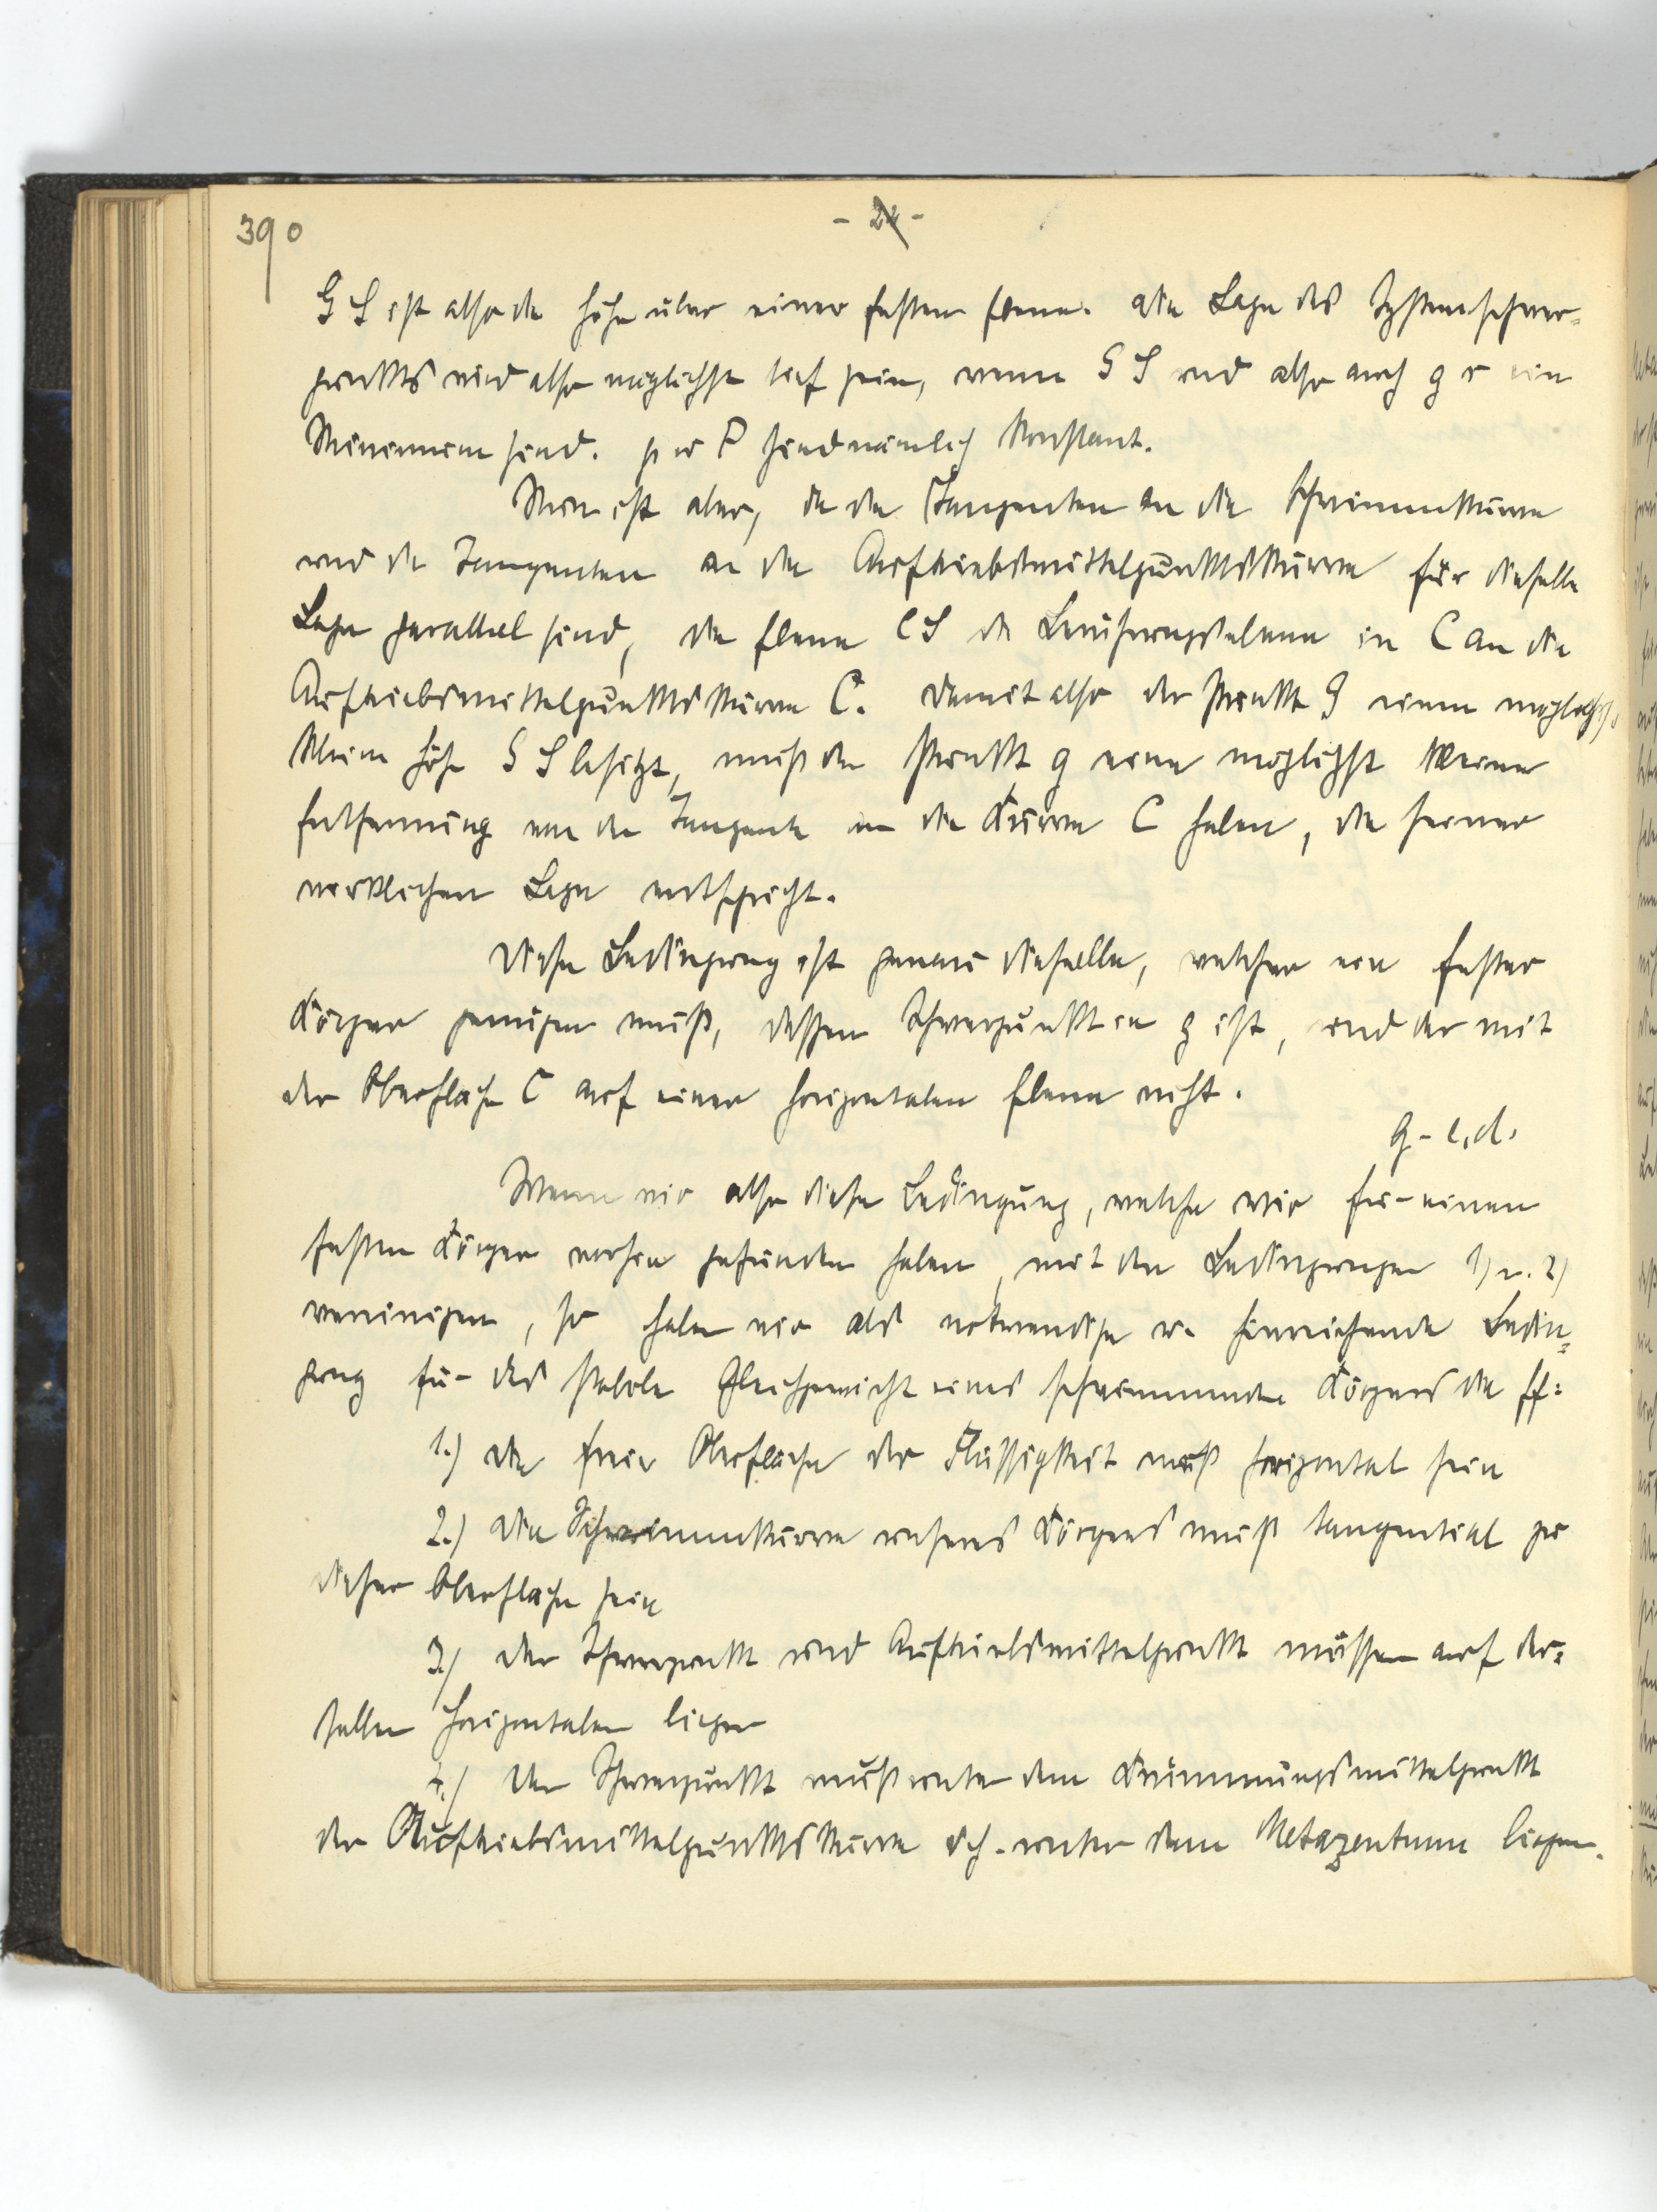 390
- 24 -
G S ist also die Höhe über einer festen Ebene. Die Lage des Systemschwer-
punktes wird also möglichst tief sein, wenn G S und also auch g c ein
Minimum sind. p u P sind nämlich konstant.
Nun ist aber, da die Tangenten an die Schwimmkurve
und die Tangenten an die Auftriebsmittelpunktskurve für dieselbe
Lage parallel sind, die Ebene C S die Berührungsebene in C an die
Auftriebsmittelpunktskurve C. Damit also der Punkt G eine möglichst
kleine Höhe G S besitzt, muß der Punkt g eine möglichst kleine
Entfernung von der Tangente an die Kurve C haben, die seiner
wirklichen Lage entspricht.
Diese Bedingung ist genau dieselbe, welcher ein fester
Körper genügen muß, dessen Schwerpunkt in g ist, und der mit
der Oberfläche C auf einer horizontalen Ebene ruht.
q. e. d.
Wenn wir also diese Bedingung, welche wir für einen
festen Körper vorhin gefunden haben, mit den Bedingungen 1) u. 2)
vereinigen, so haben wir als notwendige u. hinreichende Bedin-
gung für das stabile Gleichgewicht eines schwimmenden Körpers die ff:
1.) Die freie Oberfläche der Flüssigkeit muß horizontal sein
2.) Die Schwimmkurve unseres Körpers muß tangential zu
dieser Oberfläche sein
3.) Der Schwerpunkt und Auftriebsmittelpunkt müssen auf der-
selben Horizontalen liegen
4.) Der Schwerpunkt muß unter dem Krümmungsmittelpunkt
der Auftriebsmittelpunktskurve d.h. unter dem Metazentrum liegen.